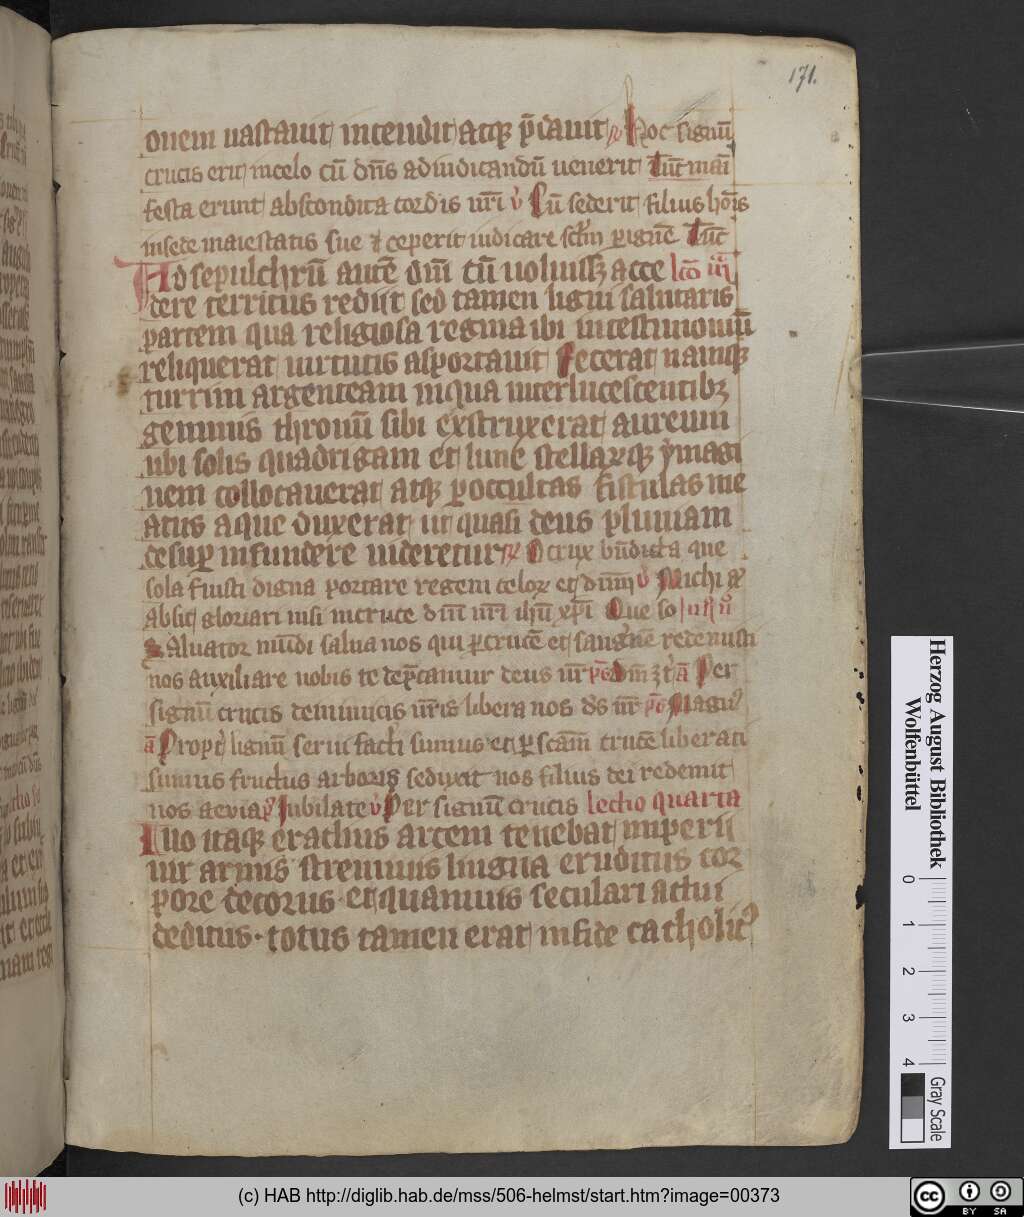 171.
onem uastauit incendit atq; p̄dauit ℟ Hoc signū
crucis erit incelo cū dn̄s adiudicandū uenerit Tūc mani
festa erunt abscondita cordis nr̄i v̓ Cū sederit filius hōis
insede maiestatis sue ⁊ ceperit iudicare sclm̄ p ignē Tūc
Ad sepulchrū autē dn̄i cū uoluiss; acce lc̄o iii
dere territus rediit sed tamen ligni salutaris
partem qua religiosa regina ibi intestimoniū
reliquerat uirtutis asportauit Fecerat namq;
turrim argenteam inqua interlucescentib;
gemmis thronū sibi exstruxerat aureum
ubi solis quadrigam et lune stellarq; ymagi
nem collocauerat atq; p occultas fistulas me
atus aque duxerat ut quasi deus pluuiam
desup infundere uideretur ℟ O crux bn̄dicta que
sola fuisti digna portare regem celoꝝ et dn̄m v̓ Michi
absit gloriari nisi incruce dn̄i nr̄i ih̄u xp̄i Que so
Saluator mūdi salua nos qui p crucē et sanguinē redemisti
nos auxiliare nobis te dep̄camur deus nr̄ Per
signū crucis deinimicis nr̄is libera nos d̄s nr̄ Magn
ā Propt lignū serui facti sumus et p scām crucē liberati
sumus fructus arboris seduxit nos filius dei redemit
nos aeuia Iubilate v̓ Per signū crucis lectio quarta
Quo itaq; eraclius arcem tenebat imperii
uir armis strenuus lingua eruditus cor
pore decorus et quamuis seculari actui
deditus · totus tamen erat infide catholic᷒
Herzog August Bibliothek
Wolfenbüttel
0 1 2 3 4
Gray Scale
(c) HAB http://diglib.hab.de/mss/506-helmst/start.htm?image=00373
cc BY SA